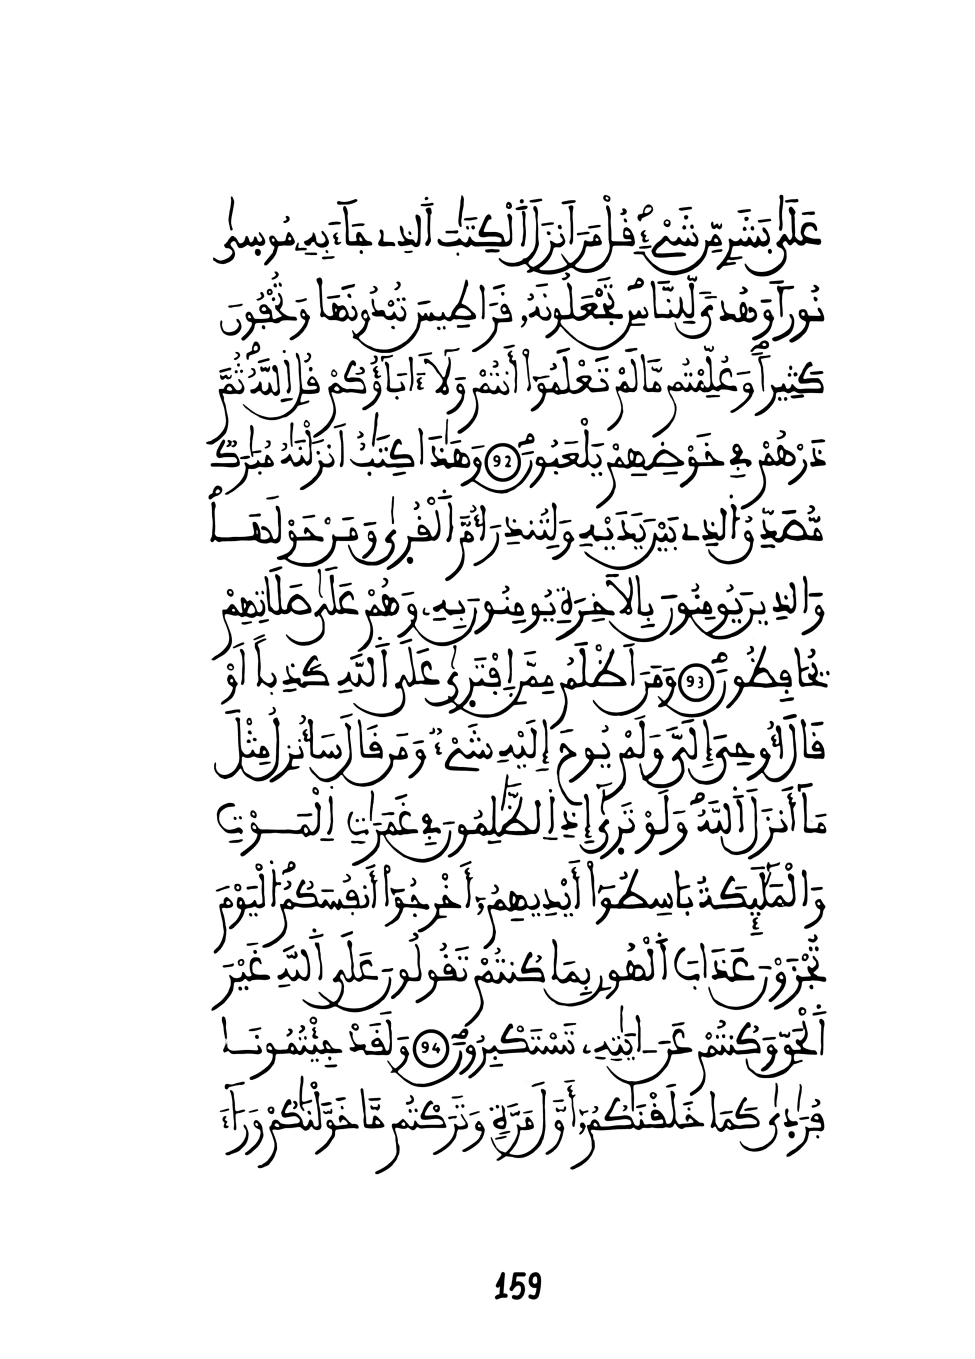 عَلَىٰ بَشَرٍ مِّن شَےْءٍۖ قُلْ مَنَ اَنزَلَ اَ۬لْكِتَٰبَ اَ۬لذِے جَآءَ بِهِۦ مُوس۪ىٰ
نُوراٗ وَهُدىٗ لِّلنَّاسِۖ تَجْعَلُونَهُۥ قَرَاطِيسَ تُبْدُونَهَا وَتُخْفُونَ
كَثِيراٗۖ وَعُلِّمْتُم مَّا لَمْ تَعْلَمُوٓاْ أَنتُمْ وَلَآ ءَابَآؤُكُمْ قُلِ اِ۬للَّهُۖ ثُمَّ
ذَرْهُمْ فِے خَوْضِهِمْ يَلْعَبُونَۖ 92 وَهَٰذَا كِتَٰبٌ اَنزَلْنَٰهُ مُبَٰرَكٞ
مُّصَدِّقُ اُ۬لذِے بَيْنَ يَدَيْهِ وَلِتُنذِرَ أُمَّ اَ۬لْقُر۪ىٰ وَمَنْ حَوْلَهَاۖ
وَالذِينَ يُومِنُونَ بِالَاخِرَةِ يُومِنُونَ بِهِۦ وَهُمْ عَلَىٰ صَلَاتِهِمْ
يُحَافِظُونَۖ 93 وَمَنَ اَظْلَمُ مِمَّنِ اِ۪فْتَر۪ىٰ عَلَى اَ۬للَّهِ كَذِباً اَوْ
قَالَ أُوحِيَ إِلَيَّ وَلَمْ يُوحَ إِلَيْهِ شَےْءٞ وَمَن قَالَ سَأُنزِلُ مِثْلَ
مَآ أَنزَلَ اَ۬للَّهُۖ وَلَوْ تَر۪ىٰٓ إِذِ اِ۬لظَّٰلِمُونَ فِے غَمَرَٰتِ اِ۬لْمَوْتِ
وَالْمَلَٰٓئِكَةُ بَاسِطُوٓاْ أَيْدِيهِمُۥٓ أَخْرِجُوٓاْ أَنفُسَكُمُۖ اُ۬لْيَوْمَ
تُجْزَوْنَ عَذَابَ اَ۬لْهُونِ بِمَا كُنتُمْ تَقُولُونَ عَلَى اَ۬للَّهِ غَيْرَ
اَ۬لْحَقِّ وَكُنتُمْ عَنَ اٰيَٰتِهِۦ تَسْتَكْبِرُونَۖ 94 وَلَقَدْ جِئْتُمُونَا
فُرَٰد۪ىٰ كَمَا خَلَقْنَٰكُمُۥٓ أَوَّلَ مَرَّةٖ وَتَرَكْتُم مَّا خَوَّلْنَٰكُمْ وَرَآءَ
159